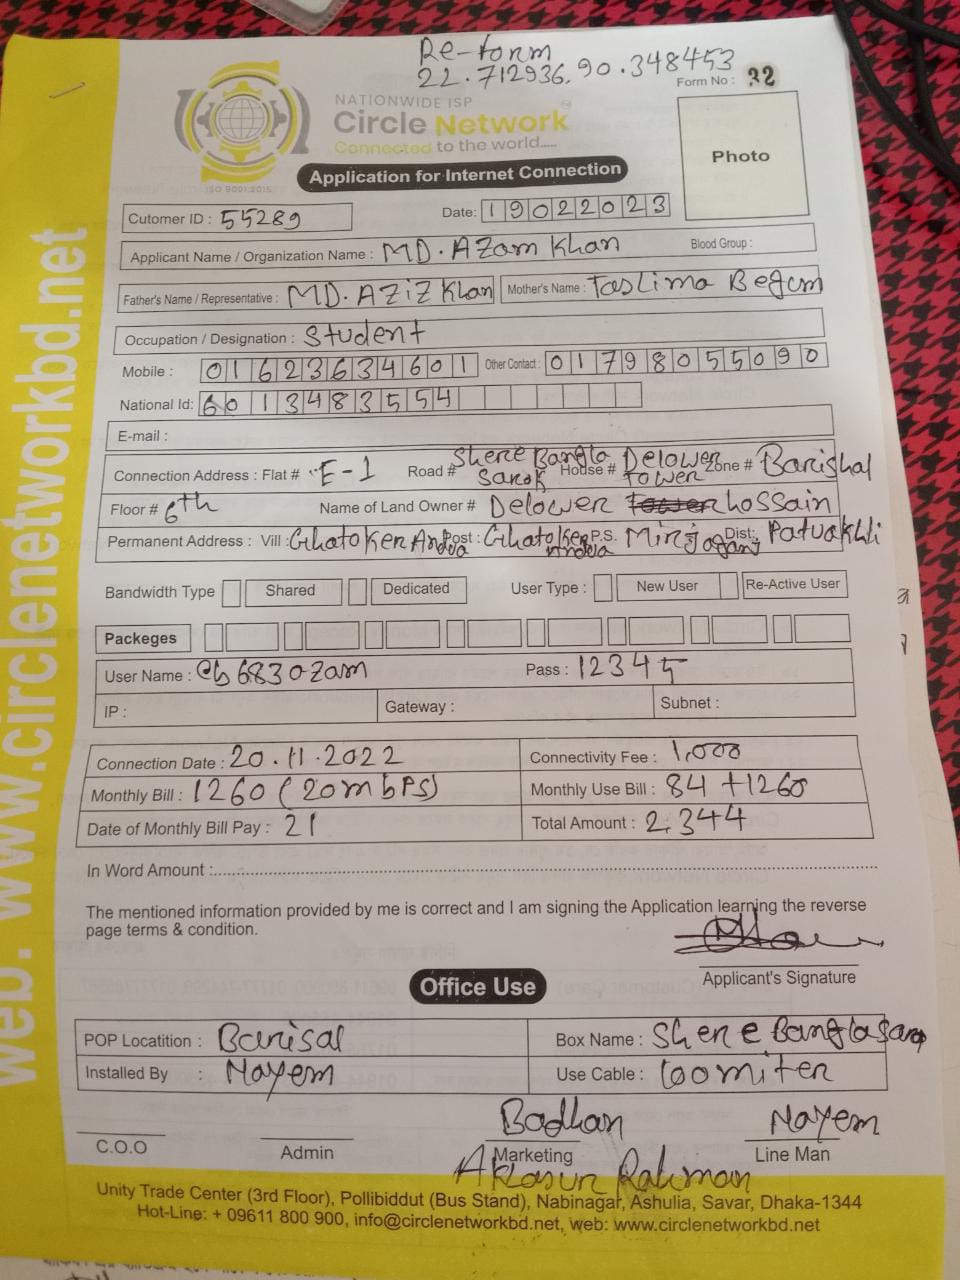 Re-form
22.712936, 90.348453
Form No : 32
NATIONWIDE ISP
Circle Network
Connected to the world.....
ISO 9001:2015
Photo
Application for Internet Connection
Cutomer ID : 55289
Date: 19022023
Applicant Name / Organization Name : MD. AZam Khan Blood Group :
Father's Name / Representative : MD. AZiZ Khan Mother's Name : Taslima Begum
Occupation / Designation : Student
Mobile : 01623634601 Other Contact : 01798055090
National Id: 6013483554
E-mail :
Connection Address : Flat # E-1 Road # Shere Bangla Sarok House # Delower Tower Zone # Barishal
Floor # 6th Name of Land Owner # Delower Hossain
Permanent Address : Vill : Ghatoker Andua Post : Ghatoker Andua P.S. Mirjaganj Dist: Patuakhli
Bandwidth Type Shared Dedicated User Type : New User Re-Active User
Packeges
User Name : Pass : 12345
IP : Gateway : Subnet :
Connection Date : 20.11.2022 Connectivity Fee : 1,000
Monthly Bill : 1260 (20mbPS) Monthly Use Bill : 84 +1260
Date of Monthly Bill Pay : 21 Total Amount : 2,344
In Word Amount :
The mentioned information provided by me is correct and I am signing the Application learning the reverse
page terms & condition.
Applicant's Signature
Office Use
POP Locatition : Barisal Box Name : Shere Banglasarok
Installed By : Nayem Use Cable : 100miter
Badhan Nayem
C.O.O Admin Marketing Line Man
Rahman
Unity Trade Center (3rd Floor), Pollibiddut (Bus Stand), Nabinagar, Ashulia, Savar, Dhaka-1344
Hot-Line: + 09611 800 900, info@circlenetworkbd.net, web: www.circlenetworkbd.net
web. www.circlenetworkbd.net